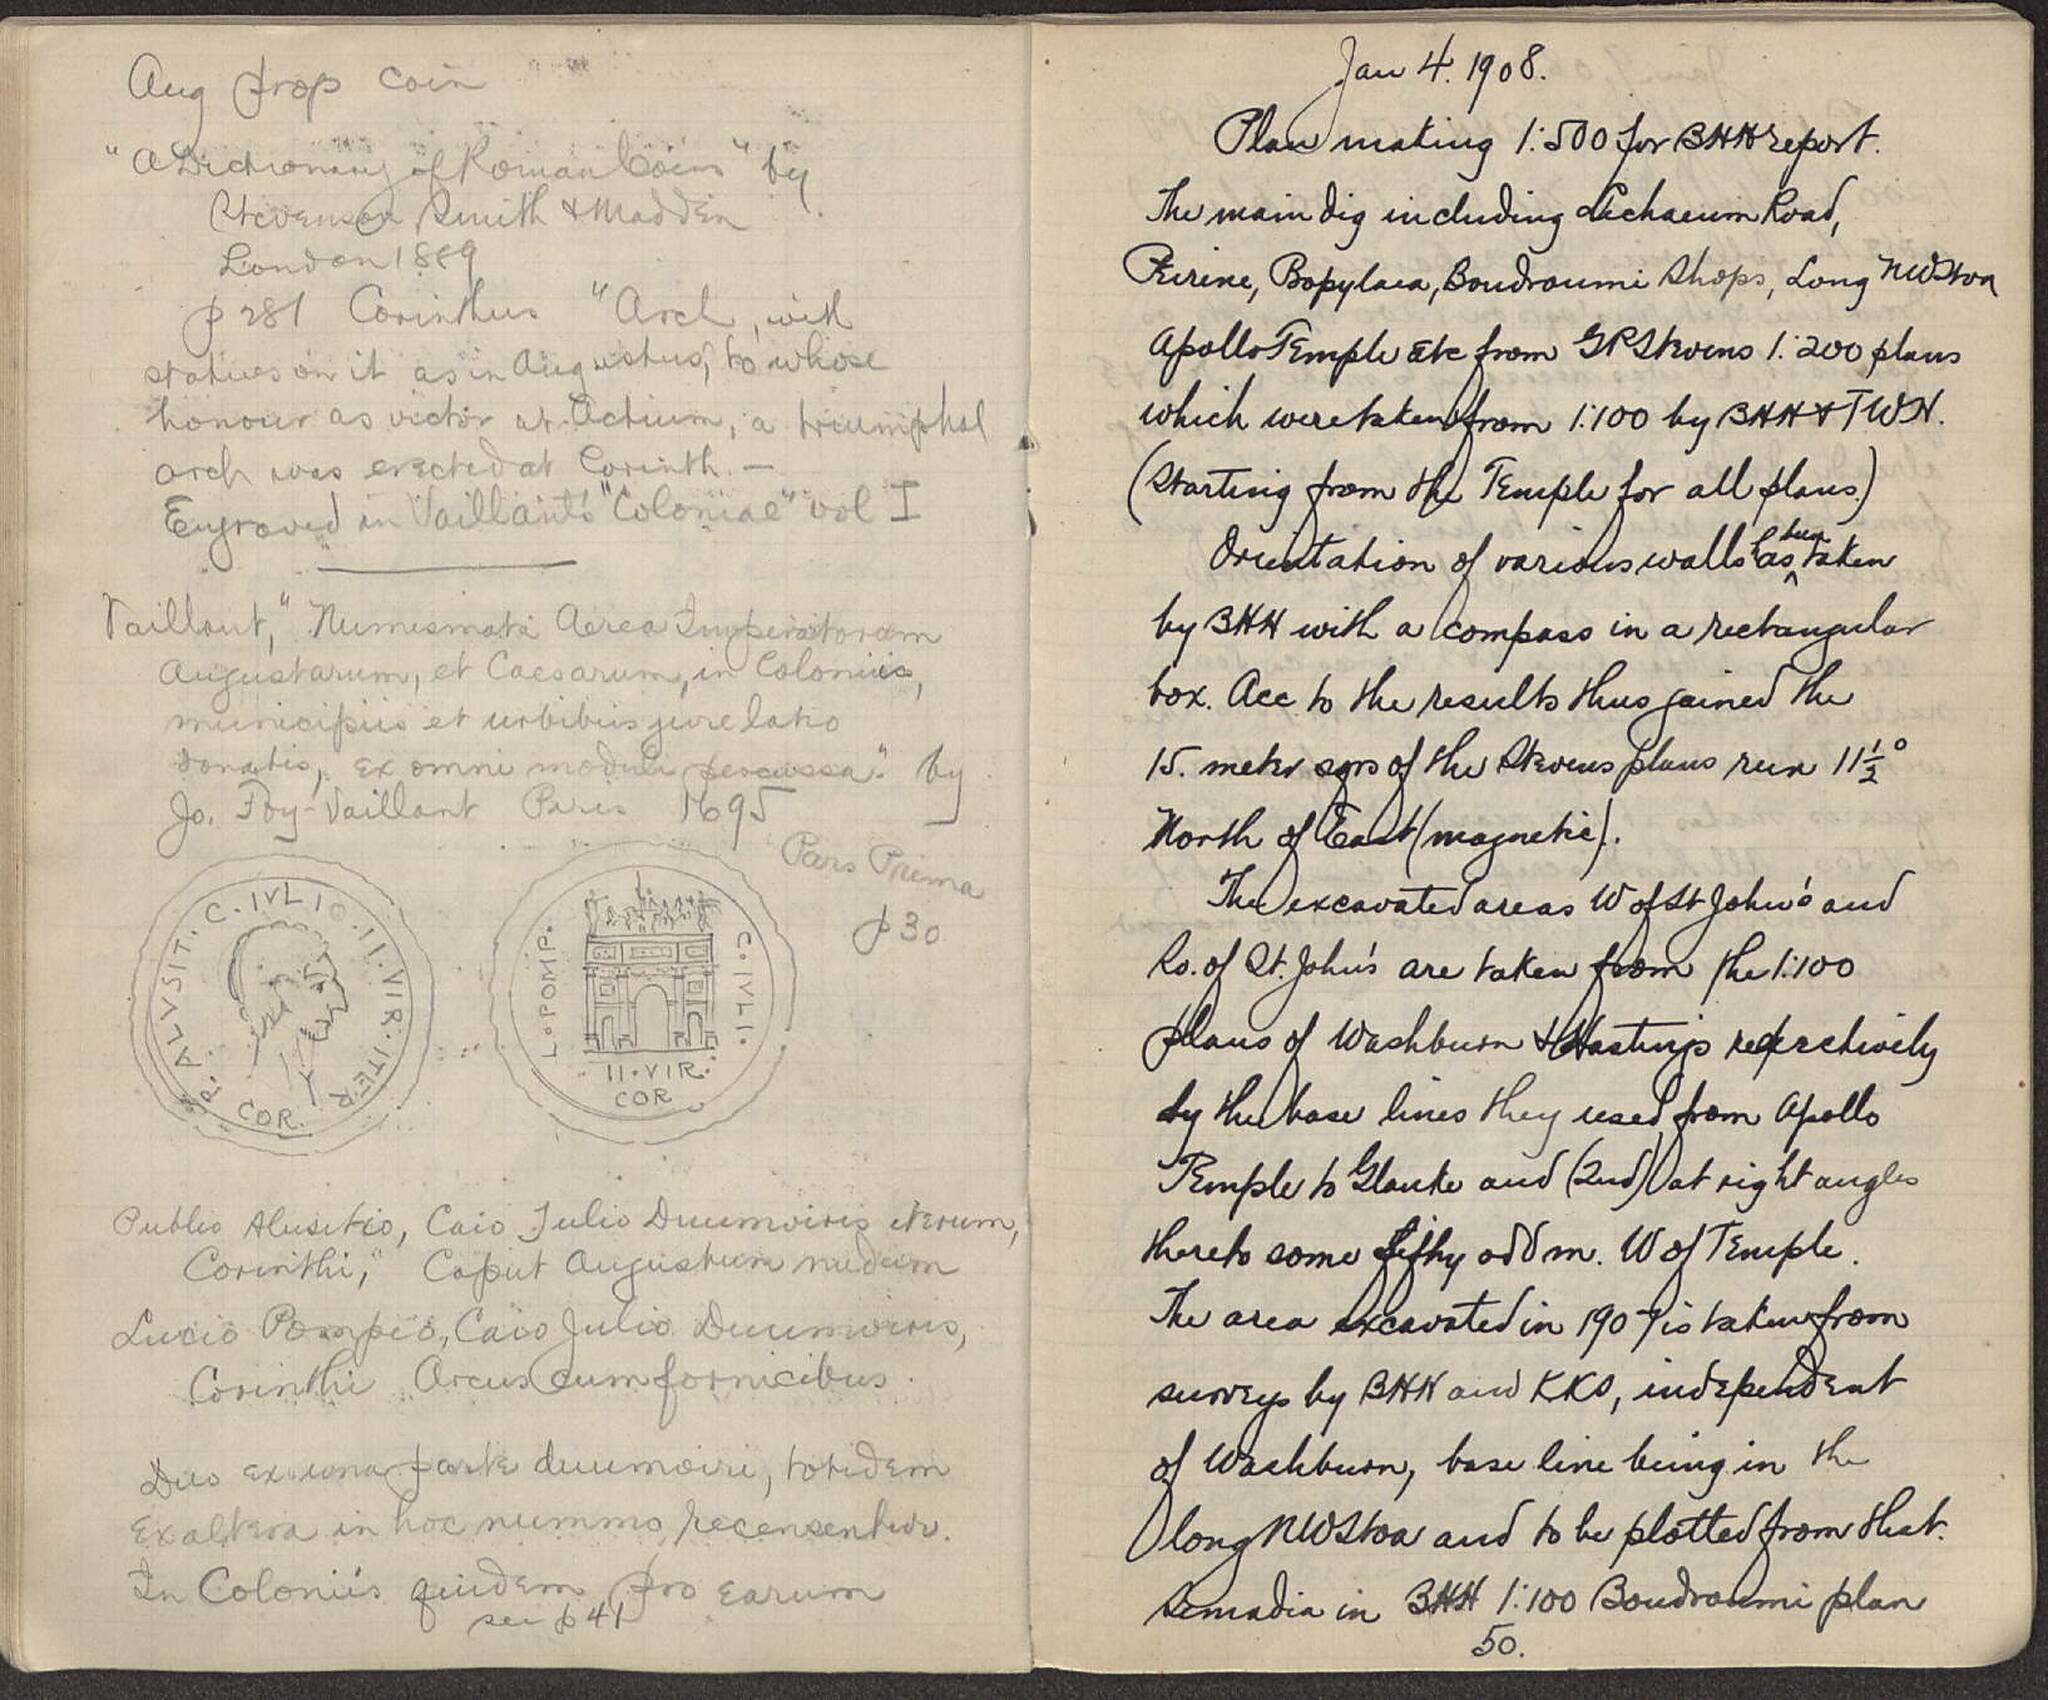 Aug prop coin
"A Dictionary of Roman Coins" by
Stevenson Smith & Madden
London 1889
p 281 Corinthus "Arch, with
statues on it as in Augustus, to whose
honour as victor at Actium, a triumphal
arch was erected at Corinth. —
Engraved in Vaillant's "Coloniae" vol I
Vaillant, "Numismata Aerea Imperatorum
Augustarum, et Caesarum, in Coloniis,
municipiis et urbibus jure latio
donatis, ex omni moduli percussa." by
Jo. Foy-Vaillant Paris 1695
Pars Prima
p 30
P. ALVSIT. C. IVLIO. II. VIR. ITER
COR.
L. POMP. C. IVLI.
II. VIR.
COR
Publio Alusitio, Caio Julio Duumviris iterum,
Corinthi," Caput Augustum nudum
Lucio Pompeo, Caio Julio Duumviris,
Corinthi Arcus cum fornicibus.
Duo ex una parte duumviri, totidem
ex altera in hoc nummo recensentur.
In Coloniis quidem pro earum
see p 41
Jan 4. 1908.
Plan making 1:500 for BHH report.
The main dig including Lechaeum Road,
Peirene, Propylaea, Boudroumi Shops, Long NW Stoa
Apollo Temple etc from GP Stevens 1:200 plans
which were taken from 1:100 by BHH & TWH.
(Starting from the Temple for all plans.)
Orientation of various walls has been taken
by BHH with a compass in a rectangular
box. Acc to the results thus gained the
15. meter sqrs of the Stevens plans run 11½°
North of East (magnetic).
The excavated areas W of St John's and
So. of St. John's are taken from the 1:100
plans of Washburn & Hastings respectively
by the base lines they used from Apollo
Temple to Glauke and (2nd) at right angles
thereto some fifty odd m. W of Temple.
The area excavated in 1907 is taken from
surveys by BHH and KKS, independent
of Washburn, base line being in the
long NW Stoa and to be plotted from that.
Semadia in BHH 1:100 Boudroumi plan
50.